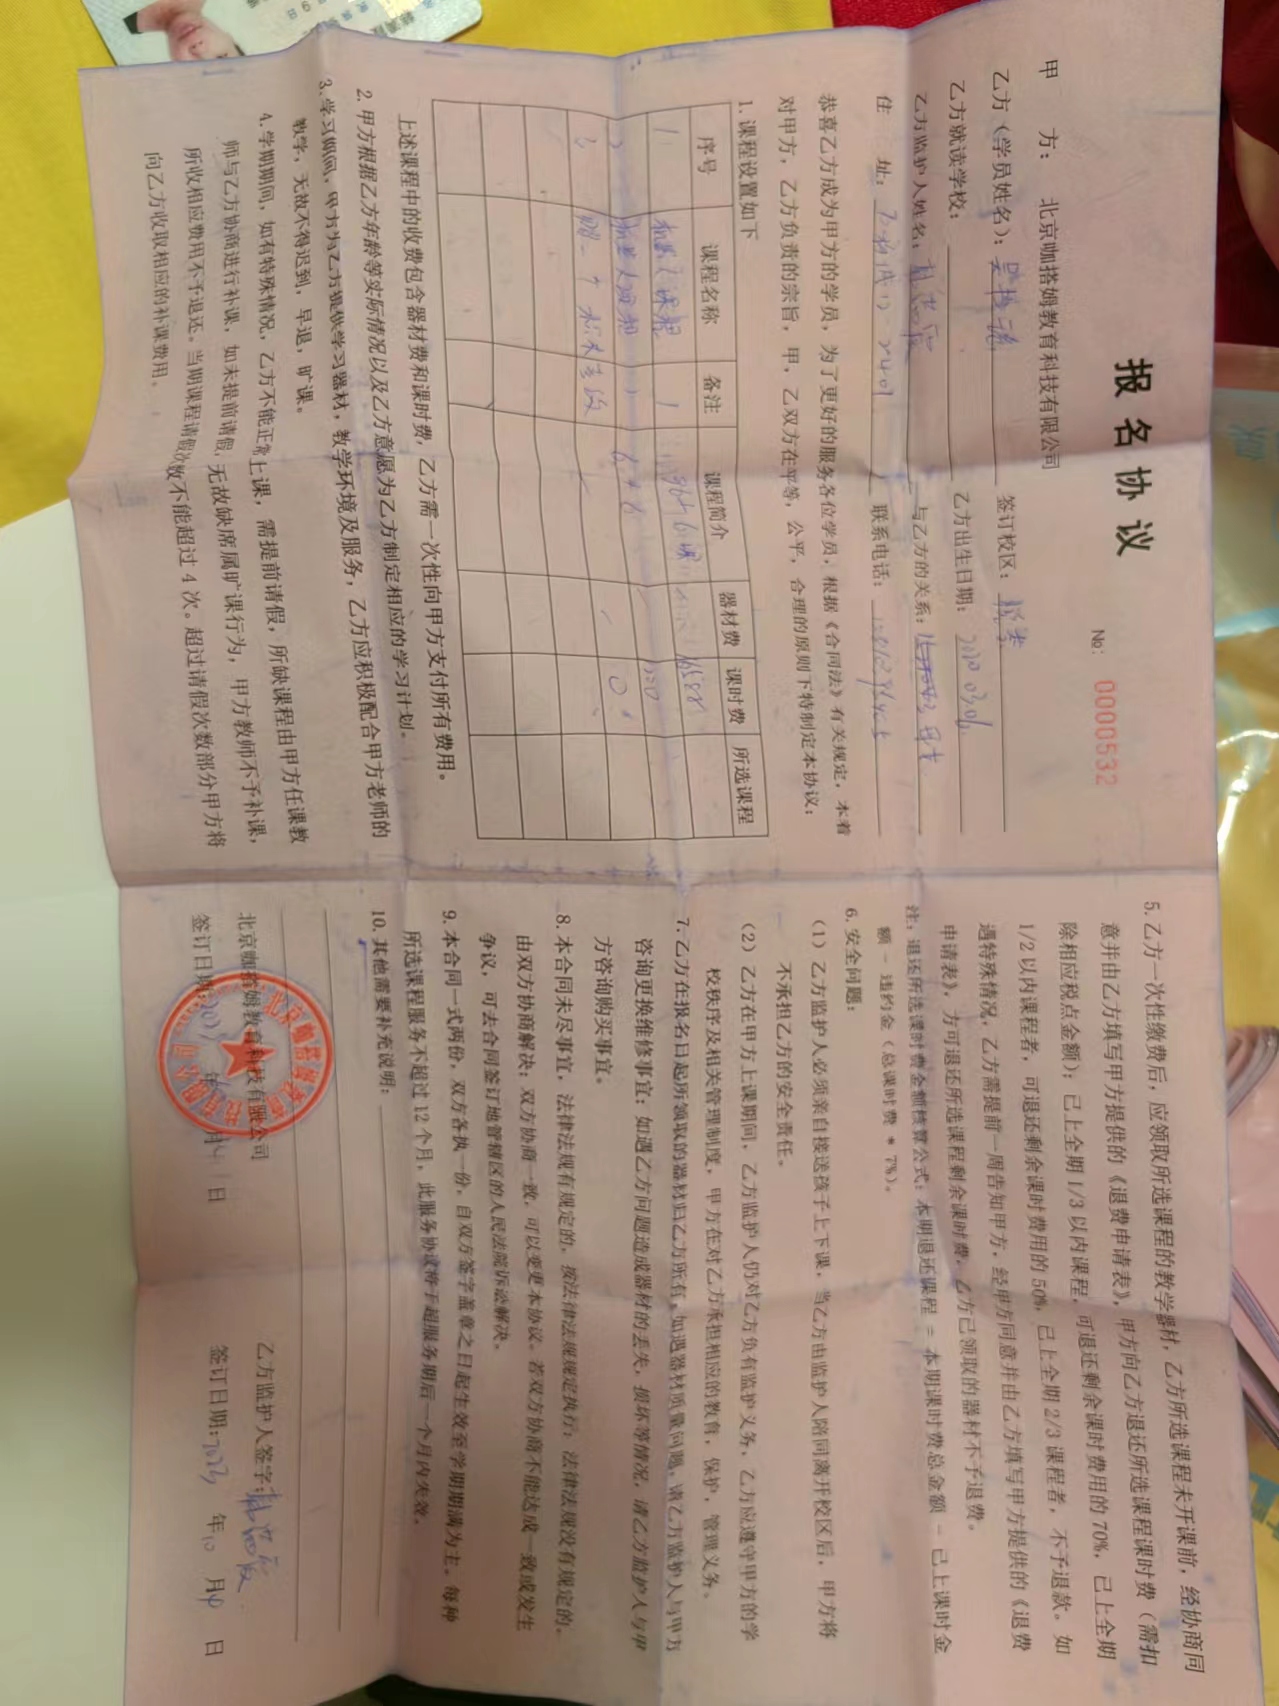 报名协议
№: 0000532
甲 方: 北京咖搭姆教育科技有限公司 签订校区:
乙方(学员姓名):
乙方就读学校: 乙方出生日期: 2020
乙方监护人姓名: 与乙方的关系:
住 址: 2401 联系电话:
恭喜乙方成为甲方的学员,为了更好的服务各位学员,根据《合同法》有关规定,本着
对甲方,乙方负责的宗旨,甲,乙双方在平等,公平,合理的原则下特制定本协议:
1.课程设置如下
序号 课程名称 备注 课程简介 器材费 课时费 所选课程
1 机器人课程 1
上述课程中的收费包含器材费和课时费,乙方需一次性向甲方支付所有费用。
2.甲方根据乙方年龄等实际情况以及乙方意愿为乙方制定相应的学习计划。
3.学习期间,甲方为乙方提供学习器材,教学环境及服务,乙方应积极配合甲方老师的
教学,无故不得迟到,早退,旷课。
4.学期期间,如有特殊情况,乙方不能正常上课,需提前请假,所缺课程由甲方任课教
师与乙方协商进行补课,如未提前请假,无故缺席属旷课行为,甲方教师不予补课,
所收相应费用不予退还。当期课程请假次数不能超过4次。超过请假次数部分甲方将
向乙方收取相应的补课费用。
5.乙方一次性缴费后,应领取所选课程的教学器材,乙方所选课程未开课前,经协商同
意并由乙方填写甲方提供的《退费申请表》,甲方向乙方退还所选课程课时费(需扣
除相应税点金额);已上全期1/3以内课程,可退还剩余课时费用的70%,已上全期
1/2以内课程者,可退还剩余课时费用的50%,已上全期2/3课程者,不予退款。如
遇特殊情况,乙方需提前一周告知甲方,经甲方同意并由乙方填写甲方提供的《退费
申请表》,方可退还所选课程剩余课时费,乙方已领取的器材不予退费。
注:退还所选课时费金额核算公式:本期退还课程 = 本期课时费总金额 - 已上课时金
额 - 违约金(总课时费 * 7%)。
6.安全问题:
(1)乙方监护人必须亲自接送孩子上下课,当乙方由监护人陪同离开校区后,甲方将
不承担乙方的安全责任。
(2)乙方在甲方上课期间,乙方监护人仍对乙方负有监护义务,乙方应遵守甲方的学
校秩序及相关管理制度,甲方在对乙方承担相应的教育,保护,管理义务。
7.乙方在报名日起所领取的器材归乙方所有,如遇器材质量问题,请乙方监护人与甲方
咨询更换维修事宜;如遇乙方问题造成器材的丢失,损坏等情况,请乙方监护人与甲
方咨询购买事宜。
8.本合同未尽事宜,法律法规有规定的,按法律法规规定执行;法律法规没有规定的,
由双方协商解决;双方协商一致,可以变更本协议。若双方协商不能达成一致或发生
争议,可去合同签订地管辖区的人民法院诉讼解决。
9.本合同一式两份,双方各执一份,自双方签字盖章之日起生效至学期期满为主,每种
所选课程服务不超过12个月,此服务协议将于超服务期后一个月内失效。
10.其他需要补充说明:
北京咖搭姆教育科技有限公司 乙方监护人签字:
签订日期: 年 月 日 签订日期:2023 年10 月 日